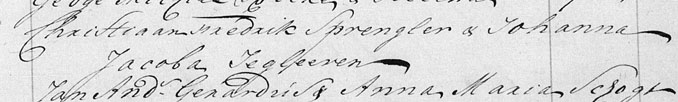 Christiaan Fredrik Sprengler & Johanna
Jacoba Tegleeren
Jan And.s Gerardus & Anna Maria